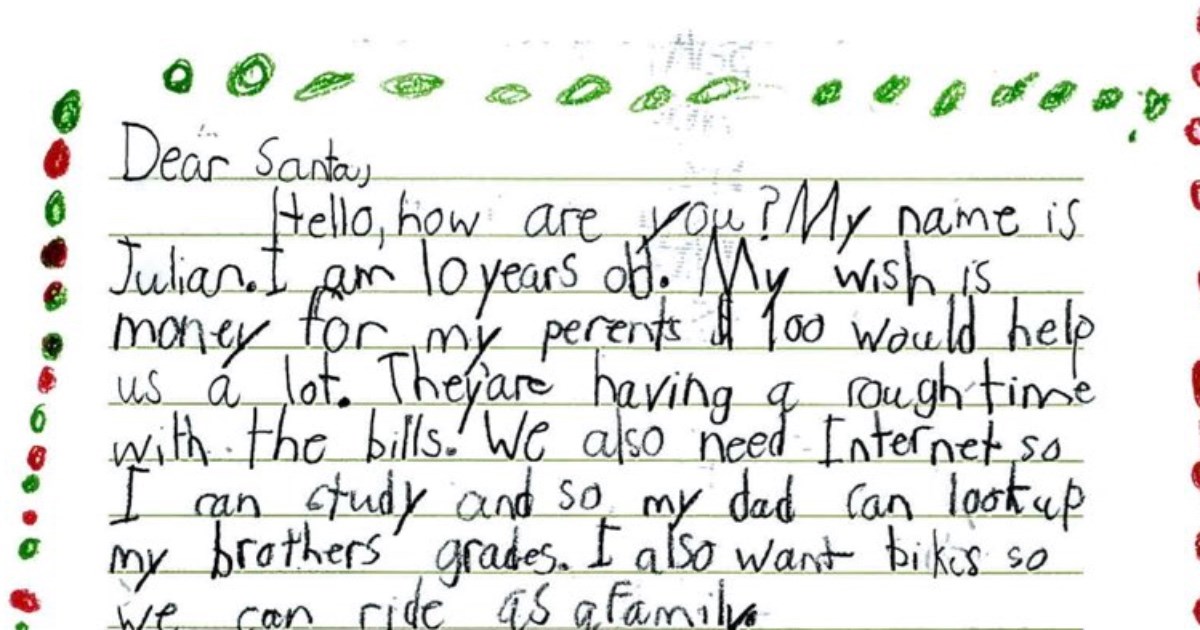 Dear Santa,
Hello, how are you? My name is
Julian. I am 10 years old. My wish is
money for my perents $ 100 would help
us a lot. They'are having a rough time
with the bills. We also need Internet so
I can study and so my dad can look up
my brothers grades. I also want bikes so
we can ride as a family.